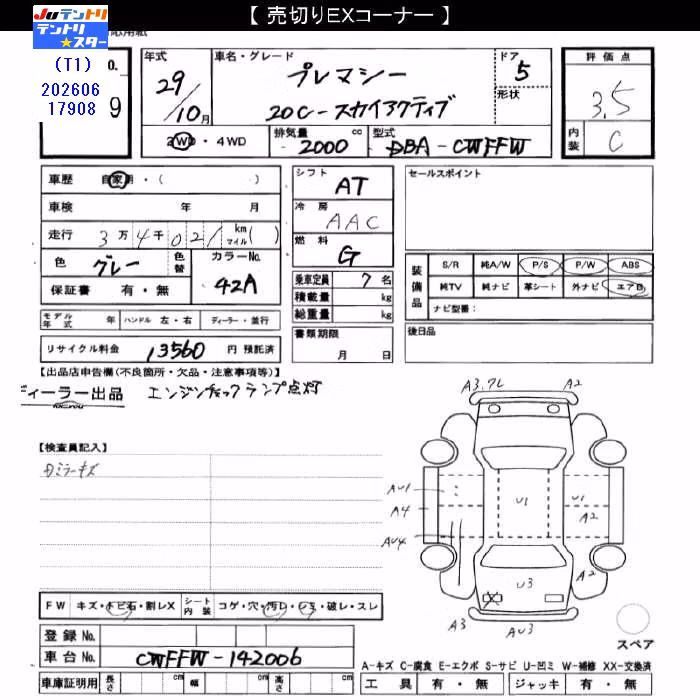 【 売切りEXコーナー 】
Juテントリ
テントリ★スター
(T1)
202606
17908
9
年式 29/10月
車名・グレード プレマシー
20C-スカイアクティブ
ドア 5
形状
2WD・4WD
排気量 2000 cc
型式 DBA-CWFFW
評価点 3.5
内装 C
車歴 自家用・( )
車検 年 月
走行 3万4千021 km マイル( )
色 グレー 色替 カラーNo. 42A
保証書 有・無
モデル年式 年 ハンドル 左・右 ディーラー・並行
リサイクル料金 13560 円 預託済
シフト AT
冷房 AAC
燃料 G
乗車定員 7 名
積載量 kg
総重量 kg
書類期限
月 日
セールスポイント
装備品
S/R 純A/W P/S P/W ABS
純TV 純ナビ 革シート 外ナビ エアB
ナビ型番:
後日品
【出品店申告欄(不良箇所・欠品・注意事項等)】
ディーラー出品 エンジンチェックランプ点灯
【検査員記入】
ミラーキズ
A3.7L A2
AU1
A4
AU4
U1
U1
A2
A2
U3
A3
AU3
スペア
FW キズ・トビ石・割レX シート内装 コゲ・穴・汚レ・シミ・破レ・スレ
登録 No.
車台 No. CWFFW-142006
車庫証明用 長さ cm 幅 cm 高さ cm
A-キズ C-腐食 E-エクボ S-サビ U-凹ミ W-補修 XX-交換済
工具 有・無 ジャッキ 有・無